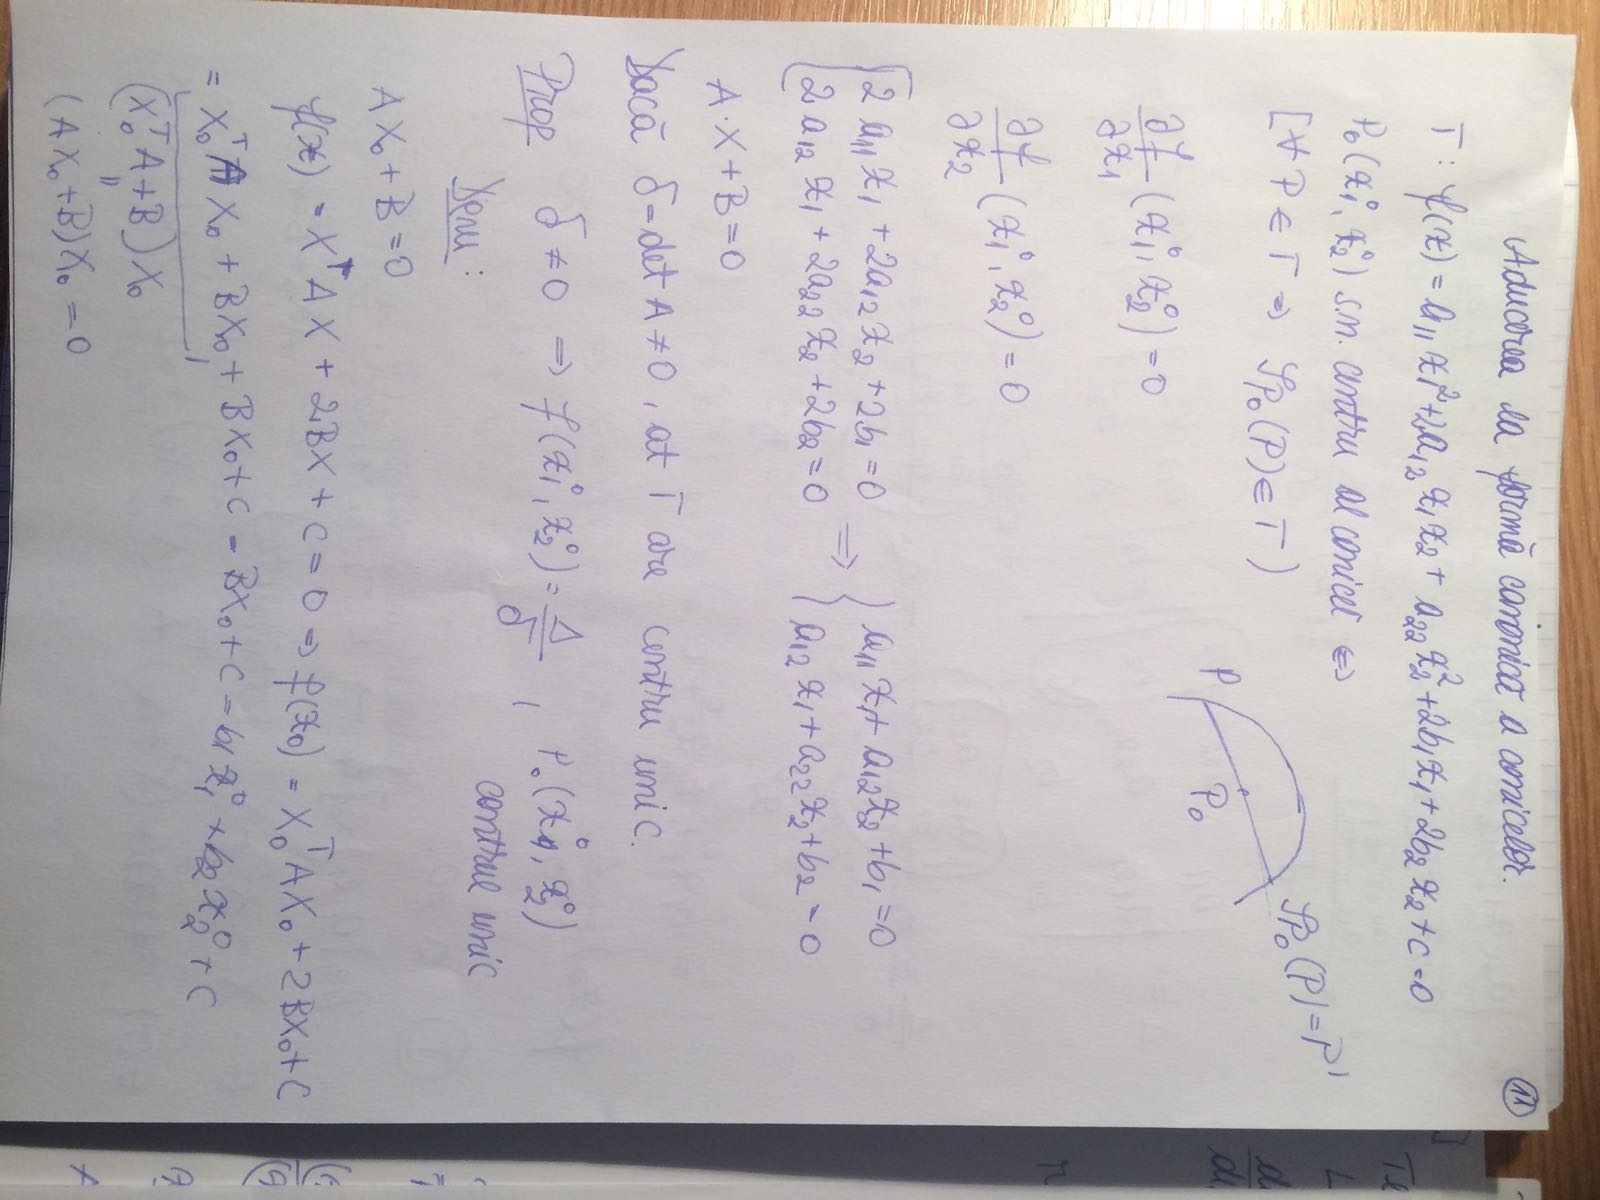 Aducerea la formă canonică a conicelor.
11
Γ: f(x) = a₁₁x₁² + 2a₁₂x₁x₂ + a₂₂x₂² + 2b₁x₁ + 2b₂x₂ + c = 0
P₀(x₁⁰, x₂⁰) s.n. centru al conicei ⇔
[∀ P ∈ Γ ⇒ 𝒮P₀(P) ∈ Γ)
P
P₀
𝒮P₀(P) = P'
∂f/∂x₁ (x₁⁰, x₂⁰) = 0
∂f/∂x₂ (x₁⁰, x₂⁰) = 0
{ 2a₁₁x₁ + 2a₁₂x₂ + 2b₁ = 0 ⇒ { a₁₁x₁ + a₁₂x₂ + b₁ = 0
{ 2a₁₂x₁ + 2a₂₂x₂ + 2b₂ = 0 { a₁₂x₁ + a₂₂x₂ + b₂ = 0
A·X + B = 0
Dacă δ = det A ≠ 0, at Γ are centru unic.
Prop δ ≠ 0 ⇒ f(x₁⁰, x₂⁰) = Δ/δ , P₀(x₁⁰, x₂⁰)
centrul unic
Dem:
AX₀ + B = 0
f(x) = XᵀAX + 2BX + c = 0 ⇒ f(x₀) = X₀ᵀAX₀ + 2BX₀ + c
= X₀ᵀAX₀ + BX₀ + BX₀ + c = BX₀ + c = b₁x₁⁰ + b₂x₂⁰ + c
(X₀ᵀA + B)X₀
"
(AX₀ + B)X₀ = 0